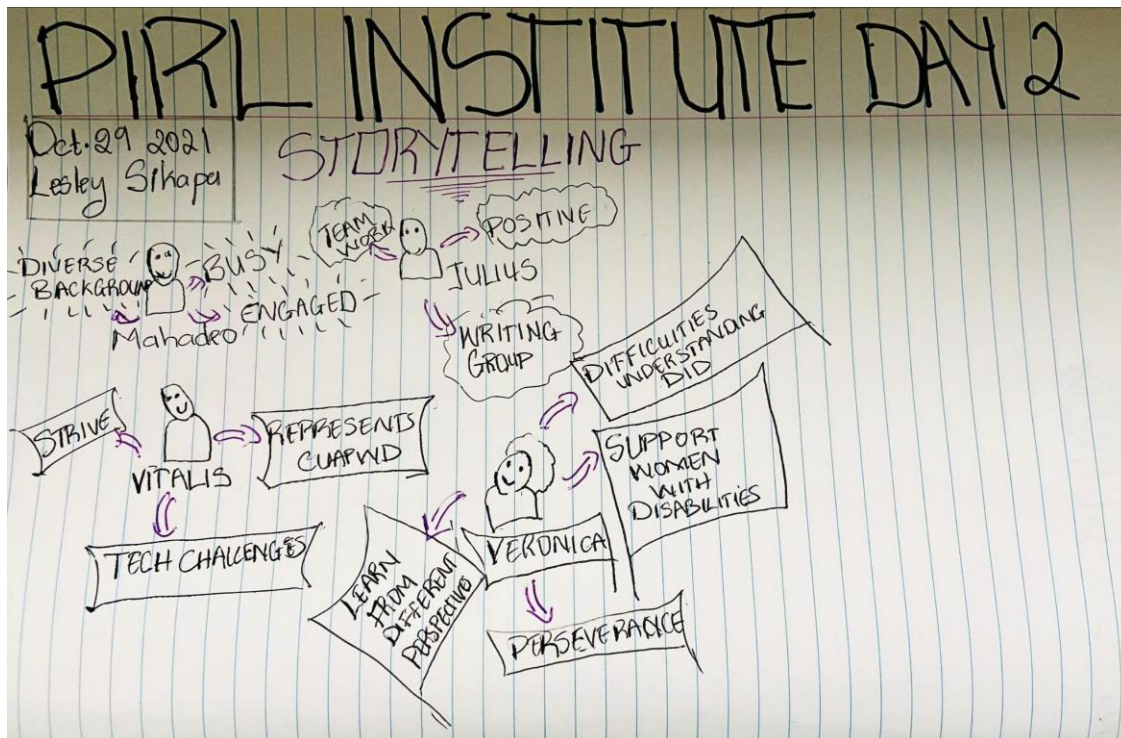 PIRL INSTITUTE DAY 2
Oct. 29 2021
Lesley Sikapa
STORYTELLING
DIVERSE
BACKGROUND
BUSY
ENGAGED
Mahadeo
TEAM
WORK
POSITIVE
JULIUS
WRITING
GROUP
STRIVE
VITALIS
REPRESENTS
CUAPWD
TECH CHALLENGES
DIFFICUITIES
UNDERSTANDING
DID
SUPPORT
WOMEN
WITH
DISABILITIES
VERONICA
LEARN
FROM
DIFFERENT
PERSPECTIVES
PERSEVERANCE